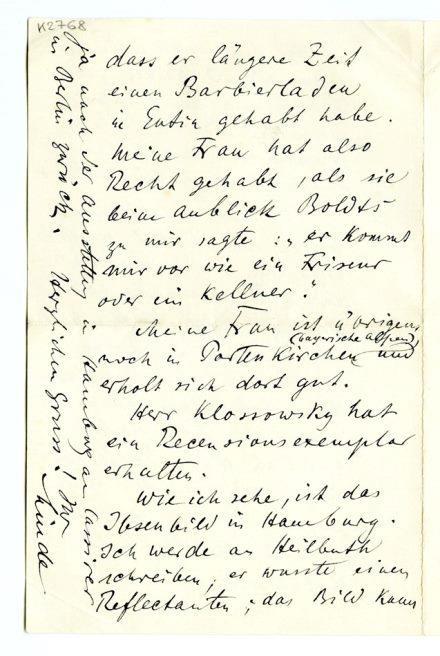 K2768
dass er längere Zeit
einen Barbierladen
in Eutin gehabt habe.
Meine Frau hat also
Recht gehabt, als sie
beim Anblick Boldts
zu mir sagte: „er kommt
mir vor wie ein Friseur
oder ein Kellner."
Meine Frau ist übrigens
(bayerische Alpen)
noch in Partenkirchen und
erholt sich dort gut.
Herr Klossowsky hat
ein Recensionsexemplar
erhalten.
Wie ich sehe, ist das
Ibsenbild in Hamburg.
Ich werde an Heilbuth
schreiben, er wusste einen
Reflectanten; das Bild kann
ja nach der Ausstellung in Hamburg an Cassirer
in Berlin zurück. Herzlichen Gruss! Ihr
Linde